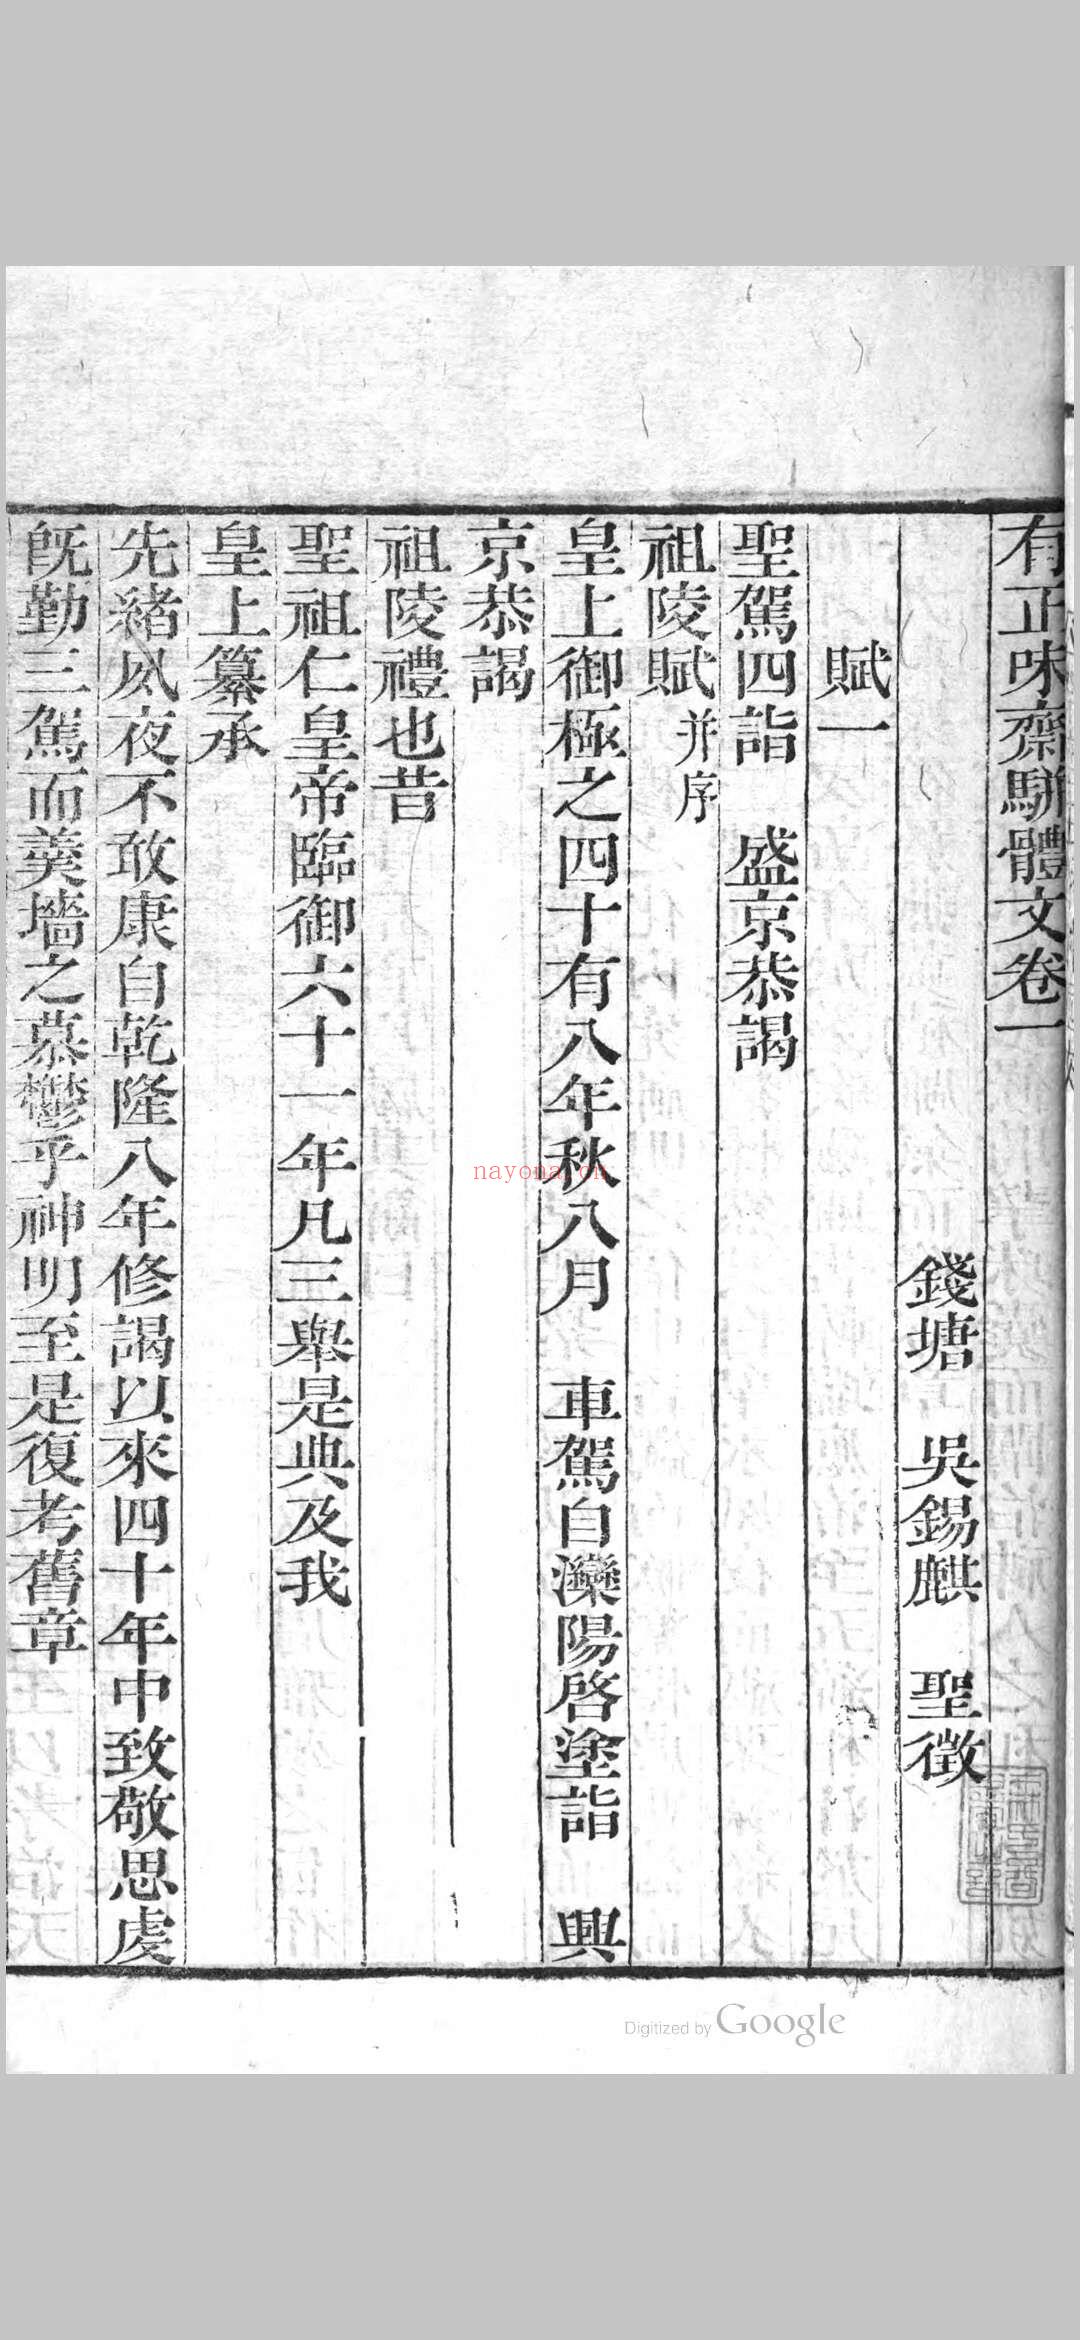 有正味齋駢體文卷一
錢塘　吳錫麒　聖徵
賦一
聖駕四詣　盛京恭謁
祖陵賦并序
皇上御極之四十有八年秋八月　車駕自灤陽啓塗詣　興
京恭謁
祖陵禮也昔
聖祖仁皇帝臨御六十一年凡三舉是典及我
皇上纂承
先緒夙夜不敢康自乾隆八年修謁以來四十年中致敬思虔
既勤三駕而羹墻之慕鬱乎神明至是復考舊章
nayona.cn
Digitized by Google